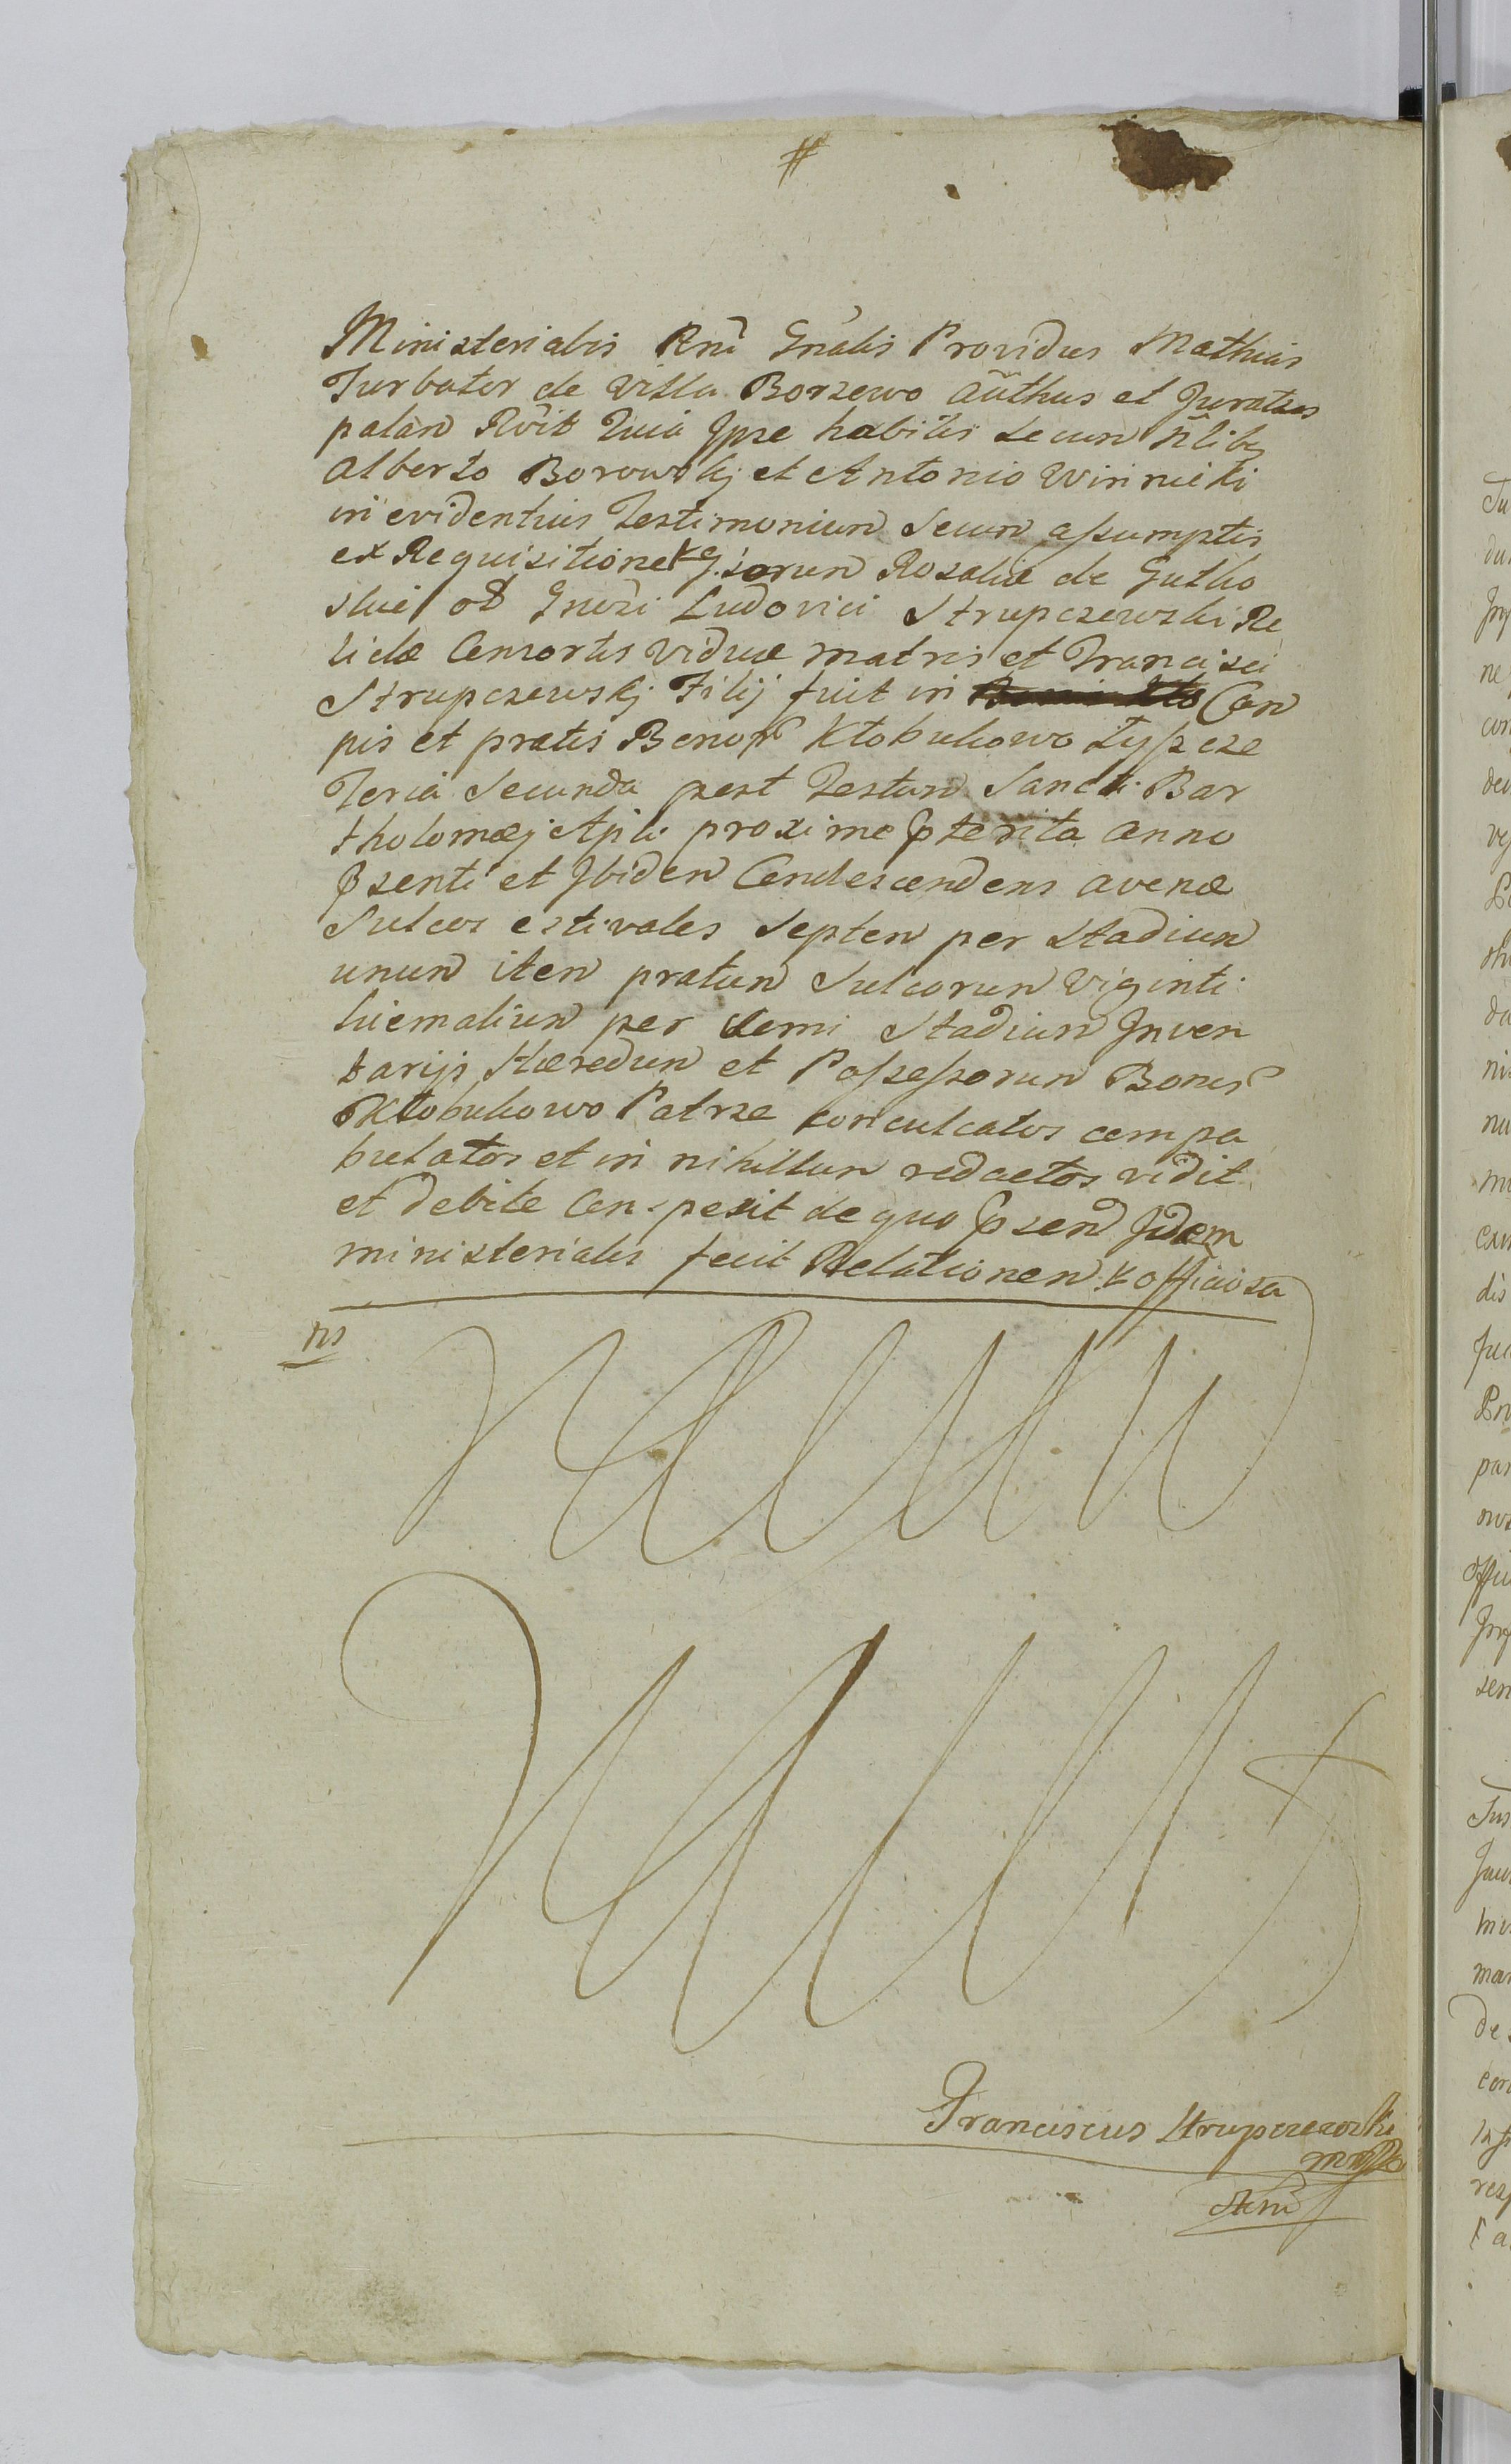 #
Ministerialis Rñi Gñalis Providus Mathias
Turbator de Villa Borzewo aũthus et Juratus
palam Rvit Quia Ipse habitis secum Nlibs
Alberto Borowskj et Antonio Winnicki
in evidentius Testimonium Secum assumptis
ex Requisitione Gsorum Rosaliæ de Gutko
skie od Gnosi Ludovici Strupczewski Re
lictæ Consortis Viduæ matris et Francisci
Strupczewskj Filij fuit in Cam
pis et pratis Bonor Kłobukowo Łyszcze
Feria Secunda post Festum Sancti Bar
tholomæj Apli proxime pterita anno
psenti et Ibidem Condescendens avenæ
Sulcos estivales Septem per Stadium
unum item pratum Sulcorum Viginti
hiemalium per Semi Stadium Inven
tarijs Hæredum et Possessorum Bonor
Kłobukowo Patrze conculcatos compa
bulatos et in nihillum redactos vidit
et debite Conspexit de quo psend Idem
ministerialis fecit Relationem officiosa
ns
Franciscus Strupczewski
mpp